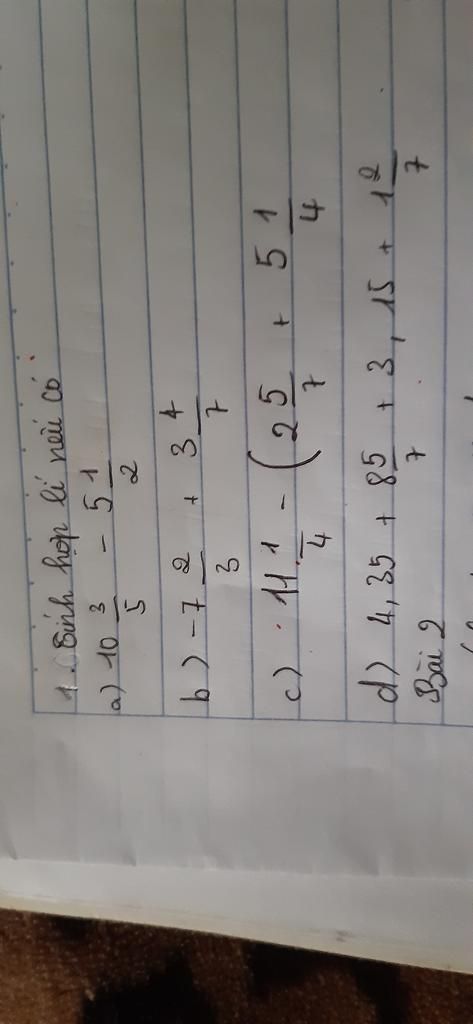 1. Tính hợp lí nếu có
a) 10 3/5 - 5 1/2
b) -7 2/3 + 3 4/7
c) 11 1/4 - (2 5/7 + 5 1/4
d) 4,35 + 8 5/7 + 3,15 + 1 2/7
Bài 2